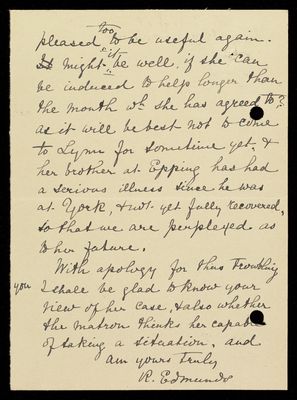 too
pleased to be useful again.
It might it be well, if she can
be induced to help longer than
the month wh. she has agreed to?
as it will be best not to come
to Lynn for sometime yet, &
her brother at Epping has had
a serious illness since he was
at York, & not yet fully recovered,
so that we are perplexed as
to her future.
With apology for thus troubling
you I shall be glad to know your
view of her case, & also whether
the matron thinks her capable
of taking a situation, and
am yours truly
R. Edmunds